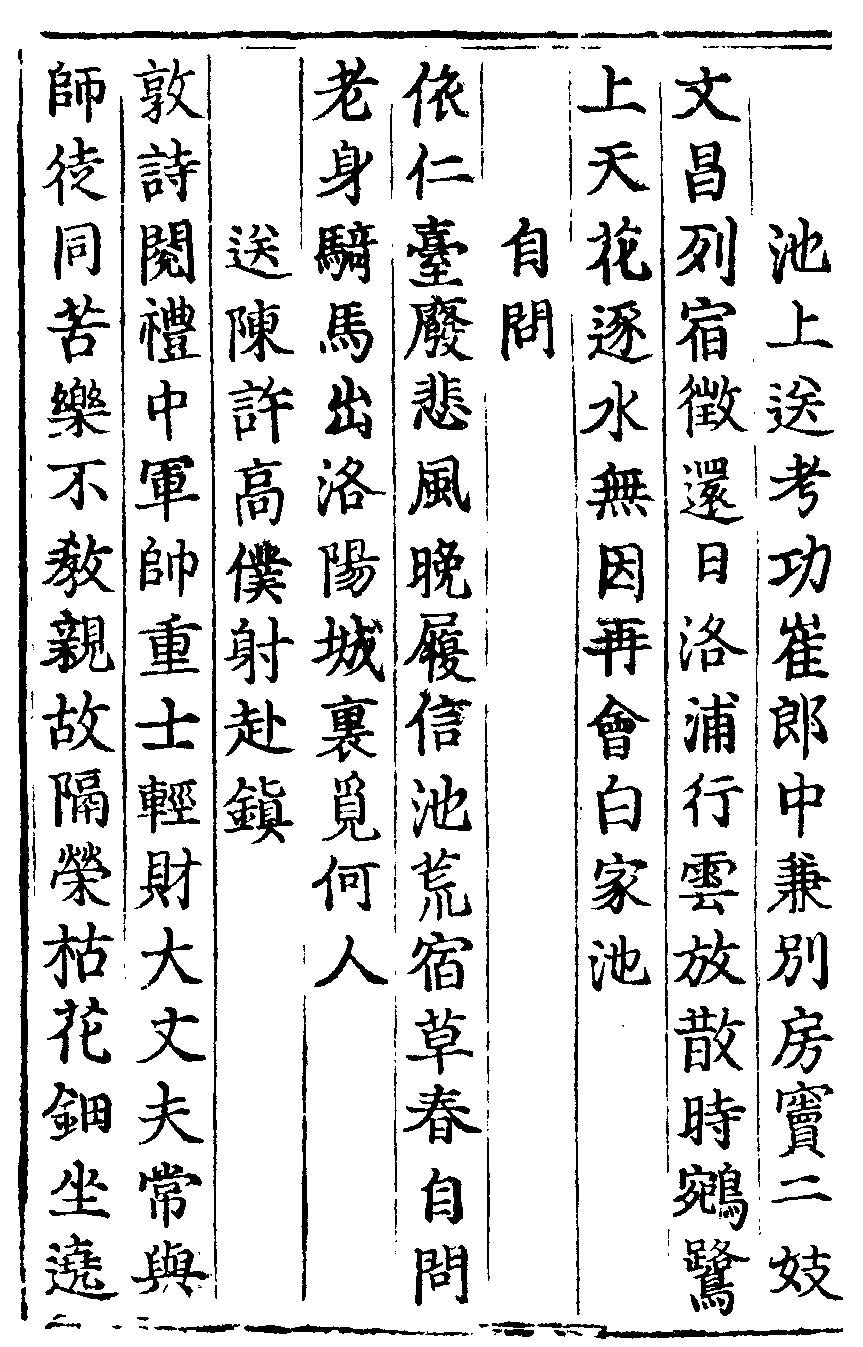 池上送考功崔郎中兼別房竇二妓
文昌列宿徵還日洛浦行雲放散時鵷鷺
上天花逐水無因再會白家池
自問
依仁臺廢悲風晚履信池荒宿草春自問
老身騎馬出洛陽城裏覓何人
送陳許高僕射赴鎮
敦詩閱禮中軍帥重士輕財大丈夫常與
師徒同苦樂不教親故隔榮枯花鈿坐遶